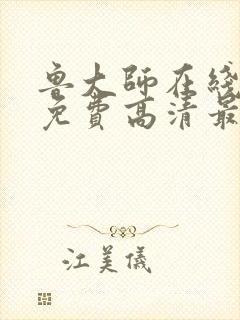 鲁大师在线
免费高清最
江美儀